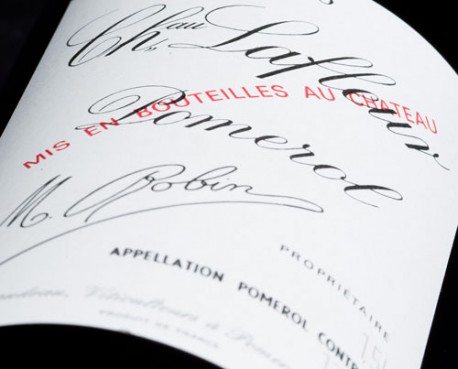 Ch^{au} Lafleur
MIS EN BOUTEILLES AU CHATEAU
Pomerol
M. Robin
PROPRIETAIRE
APPELLATION POMEROL CONTR
Viticulteurs à
PRODUIT DE FRANCE